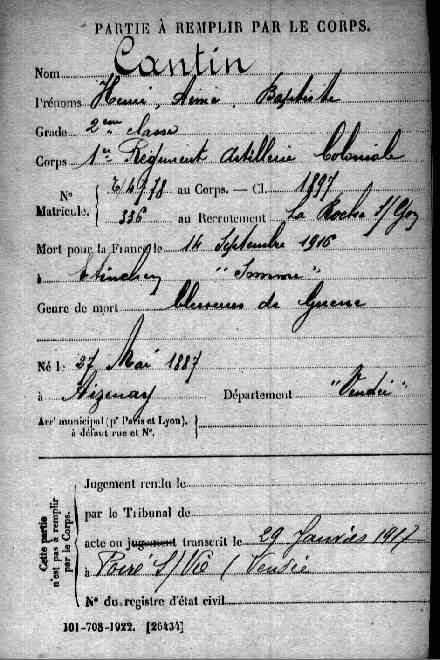 PARTIE À REMPLIR PAR LE CORPS.
Nom Cantin
Prénoms Henri, Aimé, Baptiste
Grade 2em classe
Corps 1er Régiment Artillerie Coloniale
N° Matricule. 4978 au Corps. — Cl. 1897
336 au Recrutement La Roche s/Yon
Mort pour la France le 14 Septembre 1916
à Etinehem "Somme"
Genre de mort blessures de Guerre
Né le 27 Mai 1887
à Aizenay Département "Vendée"
Arrt municipal (pr Paris et Lyon),
à défaut rue et N°.
Cette partie n'est pas à remplir par le Corps.
Jugement rendu le
par le Tribunal de
acte ou jugement transcrit le 29 Janvier 1917
à Poiré s/Vie (Vendée
N° du registre d'état civil
101-708-1922. [26434]